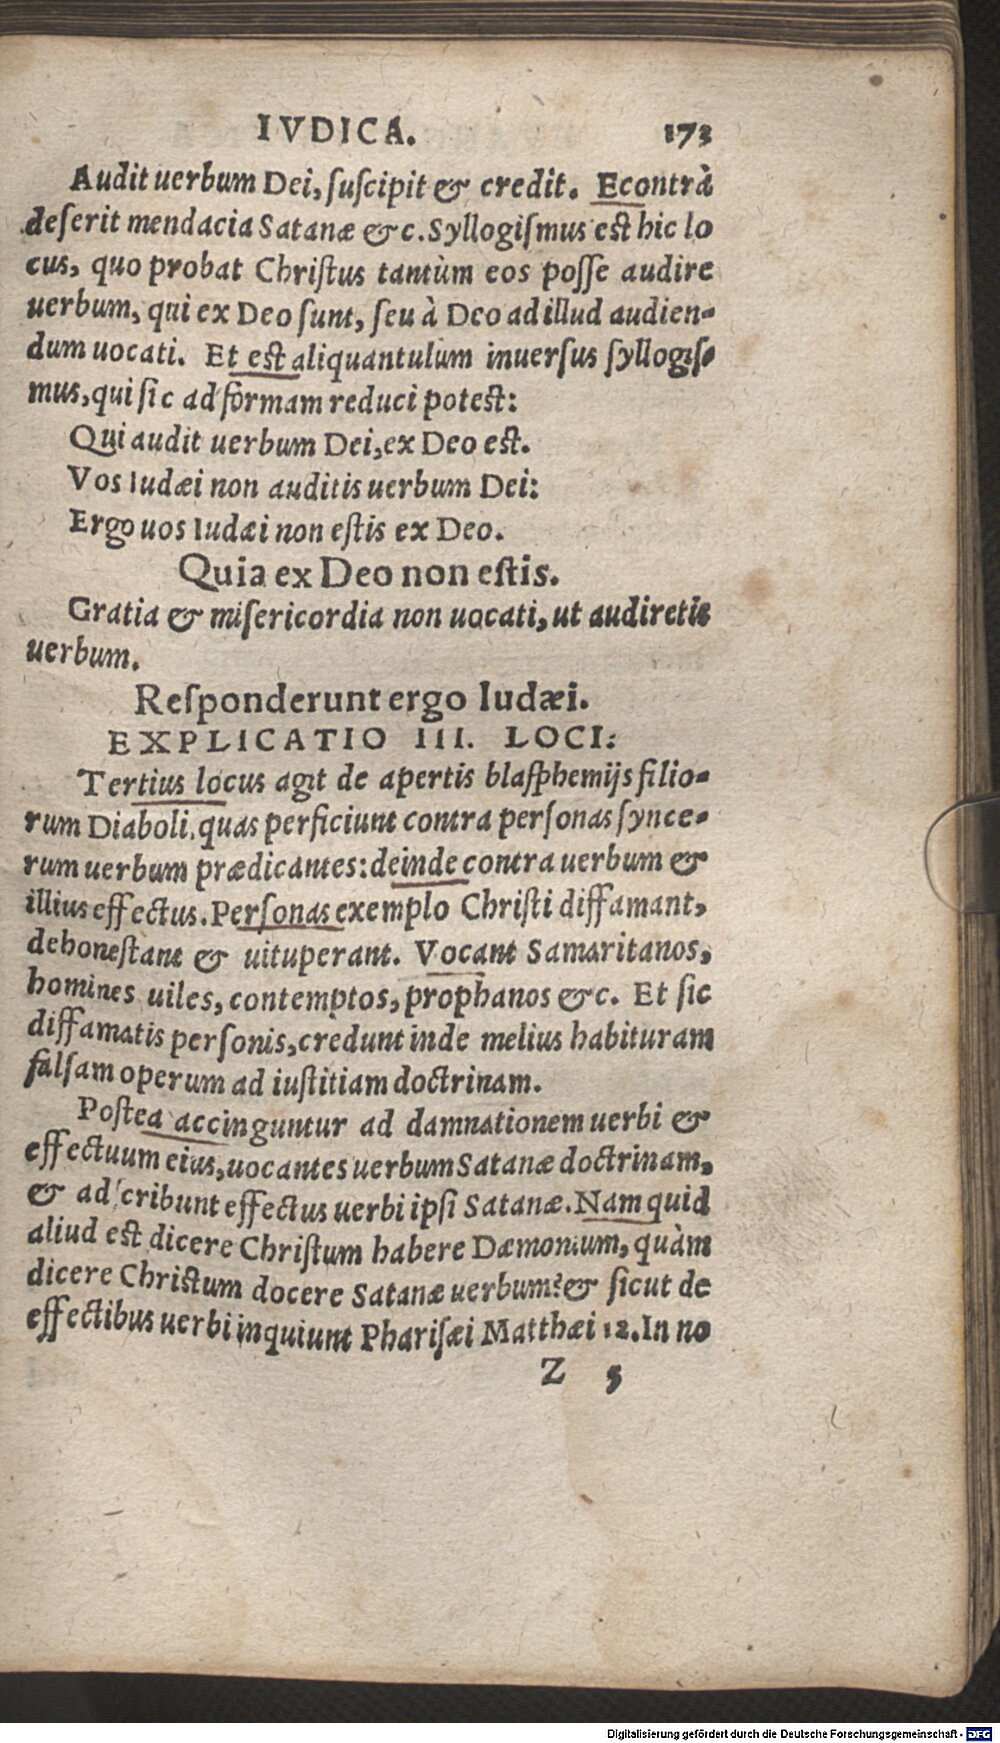 IVDICA. 173
Audit uerbum Dei, suscipit & credit. Econtrà
deserit mendacia Satanæ &c. Syllogismus est hic lo
cus, quo probat Christus tantùm eos posse audire
uerbum, qui ex Deo sunt, seu à Deo ad illud audien-
dum uocati. Et est aliquantulum inuersus syllogis-
mus, qui sic ad formam reduci potest:
Qui audit uerbum Dei, ex Deo est.
Vos Iudæi non auditis uerbum Dei:
Ergo uos Iudæi non estis ex Deo.
Quia ex Deo non estis.
Gratia & misericordia non uocati, ut audiretis
uerbum.
Responderunt ergo Iudæi.
EXPLICATIO III. LOCI:
Tertius locus agit de apertis blasphemijs filio-
rum Diaboli, quas perficiunt contra personas synce-
rum uerbum prædicantes: deinde contra uerbum &
illius effectus. Personas exemplo Christi diffamant,
dehonestant & uituperant. Vocant Samaritanos,
homines uiles, contemptos, prophanos &c. Et sic
diffamatis personis, credunt inde melius habituram
falsam operum ad iustitiam doctrinam.
Postea accinguntur ad damnationem uerbi &
effectuum eius, uocantes uerbum Satanæ doctrinam,
& adscribunt effectus uerbi ipsi Satanæ. Nam quid
aliud est dicere Christum habere Dæmonium, quàm
dicere Christum docere Satanæ uerbum? & sicut de
effectibus uerbi inquiunt Pharisæi Matthæi 12. In no
Z 5
Digitalisierung gefördert durch die Deutsche Forschungsgemeinschaft - DFG